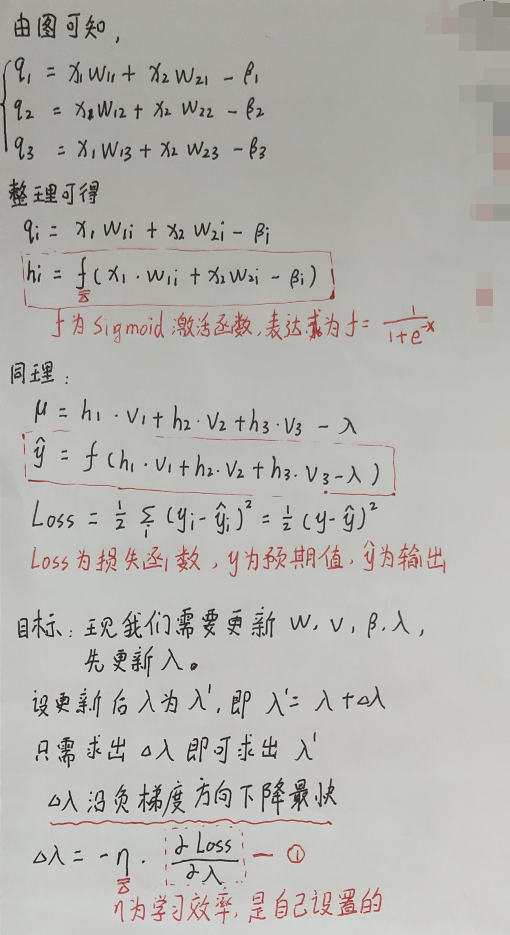 由图可知，
q₁ = x₁w₁₁ + x₂w₂₁ - β₁
q₂ = x₁w₁₂ + x₂w₂₂ - β₂
q₃ = x₁w₁₃ + x₂w₂₃ - β₃
整理可得
qᵢ = x₁w₁ᵢ + x₂w₂ᵢ - βᵢ
hᵢ = f(x₁·w₁ᵢ + x₂w₂ᵢ - βᵢ)
f为sigmoid激活函数，表达式为f = 1/(1+e⁻ˣ)
同理：
μ = h₁·v₁ + h₂·v₂ + h₃·v₃ - λ
ŷ = f(h₁·v₁ + h₂·v₂ + h₃·v₃ - λ)
Loss = ½ Σᵢ (yᵢ - ŷᵢ)² = ½ (y - ŷ)²
Loss为损失函数，y为预期值，ŷ为输出
目标：现我们需要更新 w, v, β, λ，
先更新λ。
设更新后λ为λ'，即 λ' = λ + Δλ
只需求出Δλ即可求出λ'
Δλ沿负梯度方向下降最快
Δλ = -η · ∂Loss/∂λ — ①
η为学习效率，是自己设置的